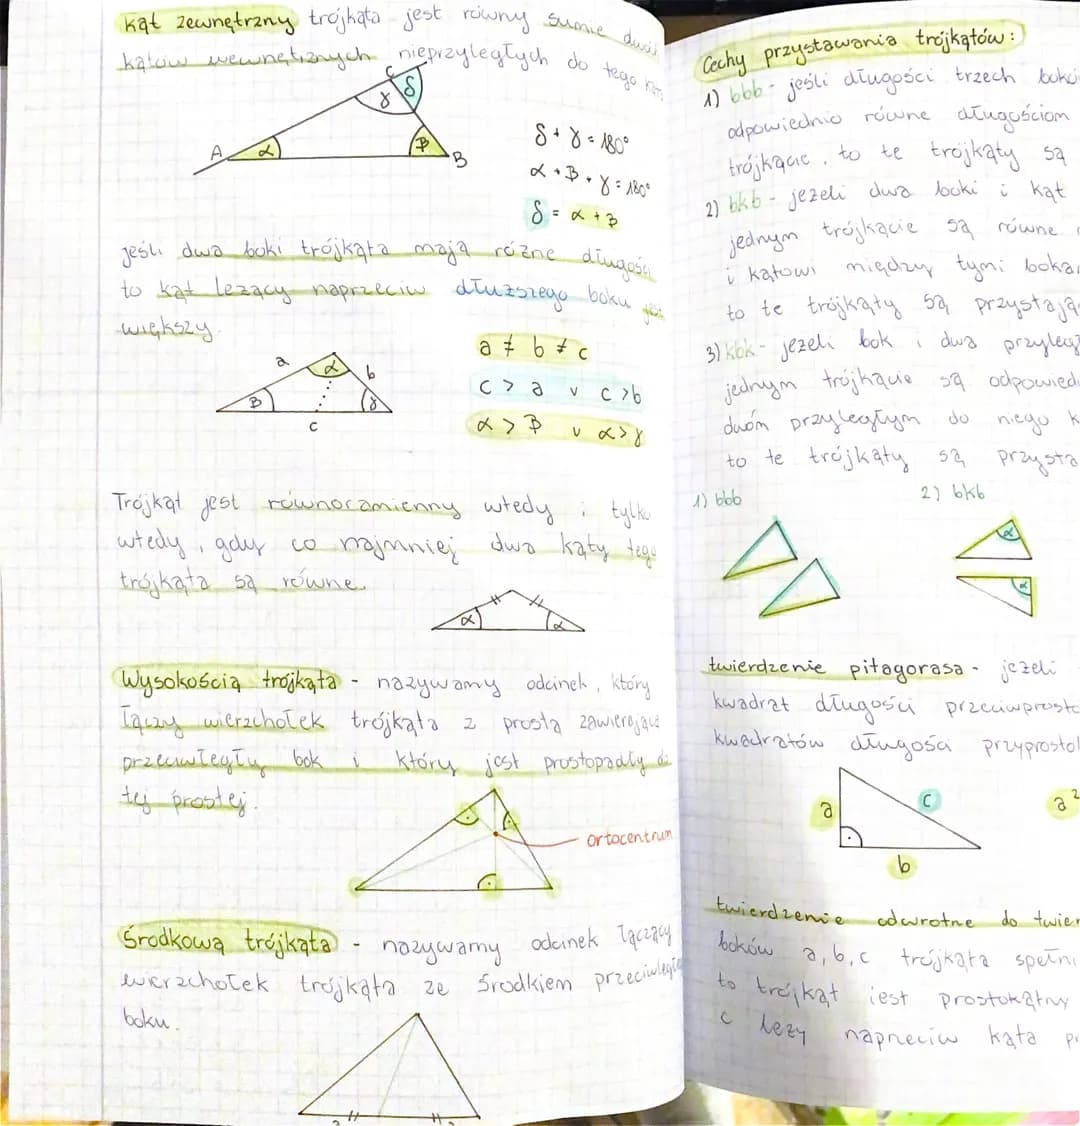 kąt zewnętrzny trójkąta jest równy sumie dwóch
kątów wewnętrznych nieprzyległych do tego kąta
C
γ δ
A α β B
δ + γ = 180°
α + β + γ = 180°
δ = α + β
jeśli dwa boki trójkąta mają różne długości
to kąt leżący naprzeciw dłuższego boku jest
większy.
a α b
β γ
c
a ≠ b ≠ c
c > a v c > b
α > β v α > γ
Trójkąt jest równoramienny wtedy i tylko
wtedy, gdy co najmniej dwa kąty tego
trójkąta są równe.
α α
Wysokością trójkąta - nazywamy odcinek, który
łączy wierzchołek trójkąta z prostą zawierającą
przeciwległy bok i który jest prostopadły do
tej prostej.
ortocentrum
Środkową trójkąta - nazywamy odcinek łączący
wierzchołek trójkąta ze środkiem
boku.
Cechy przystawania trójkątów:
1) bbb - jeśli długości trzech
odpowiednio równe długościom
trójkącie, to te trójkąty są
2) bkb - jeżeli dwa boki i kąt
jednym trójkącie są równe
i kątowi między tymi
to te trójkąty są
3) kbk - jeżeli bok i dwa
jednym trójkącie są
dwóm przyległym do niego
to te trójkąty są
1) bbb
2) bkb
α
α
twierdzenie pitagorasa - jeżeli
kwadrat długości
kwadratów długości
a c
b
a²
twierdzenie odwrotne do
boków a, b, c trójkąta
to trójkąt jest prostokątny
c leży napneciw kąta